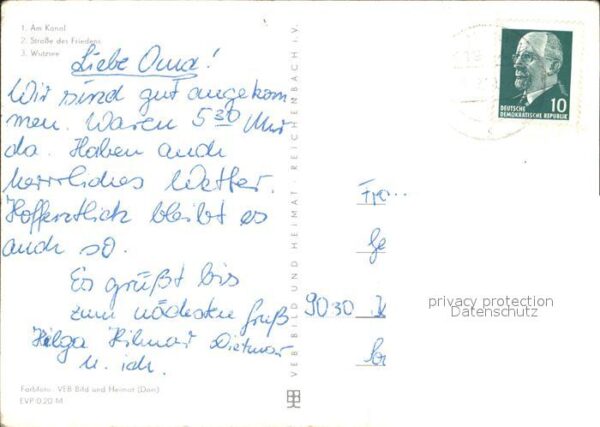 1. Am Kanal
2. Straße des Friedens
3. Woblitzsee
Liebe Oma!
Wir sind gut angekom
men. Waren 5 30 Uhr
da. Haben auch
herrliches Wetter.
Hoffentlich bleibt es
auch so.
Es grüßt bis
zum nächsten Gruß
Helga Hilmar Dietmar
u. ich.
Farbfoto: VEB Bild und Heimat (Dan)
EVP 0.20 M
VEB BILD UND HEIMAT REICHENBACH i.V.
10
DEUTSCHE
DEMOKRATISCHE REPUBLIK
9030
privacy protection
Datenschutz